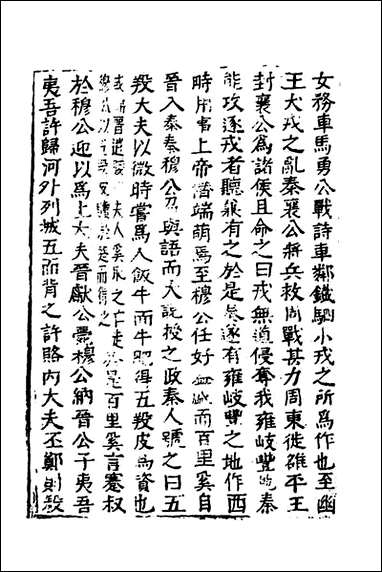 女務車馬勇公戰詩車鄰鐵駟小戎之所為作也至幽
王犬戎之亂秦襄公將兵救周戰甚力周東徙雒平王
封襄公為諸侯且命之曰戎無道侵奪我雍岐豐地秦
能攻逐戎者聽兼有之於是秦遂有雍岐豐之地作西
畤用事上帝僭端萌焉至穆公任好而百里奚自
晉入秦秦穆公召與語而大說授之政秦人號之曰五
羖大夫以微時嘗為人飯牛而牛肥得五羖皮為資也
或夫人奚之亡走百里奚言蹇叔
於穆公迎以為上大夫晉獻公薨穆公納晉公子夷吾
夷吾許歸河外列城五而背之許賂內大夫丕鄭則殺